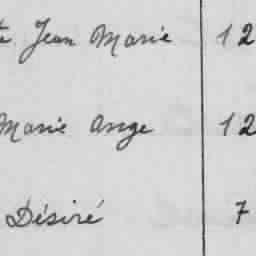 Jean Marie 12
Marie Ange 12
Désiré 7